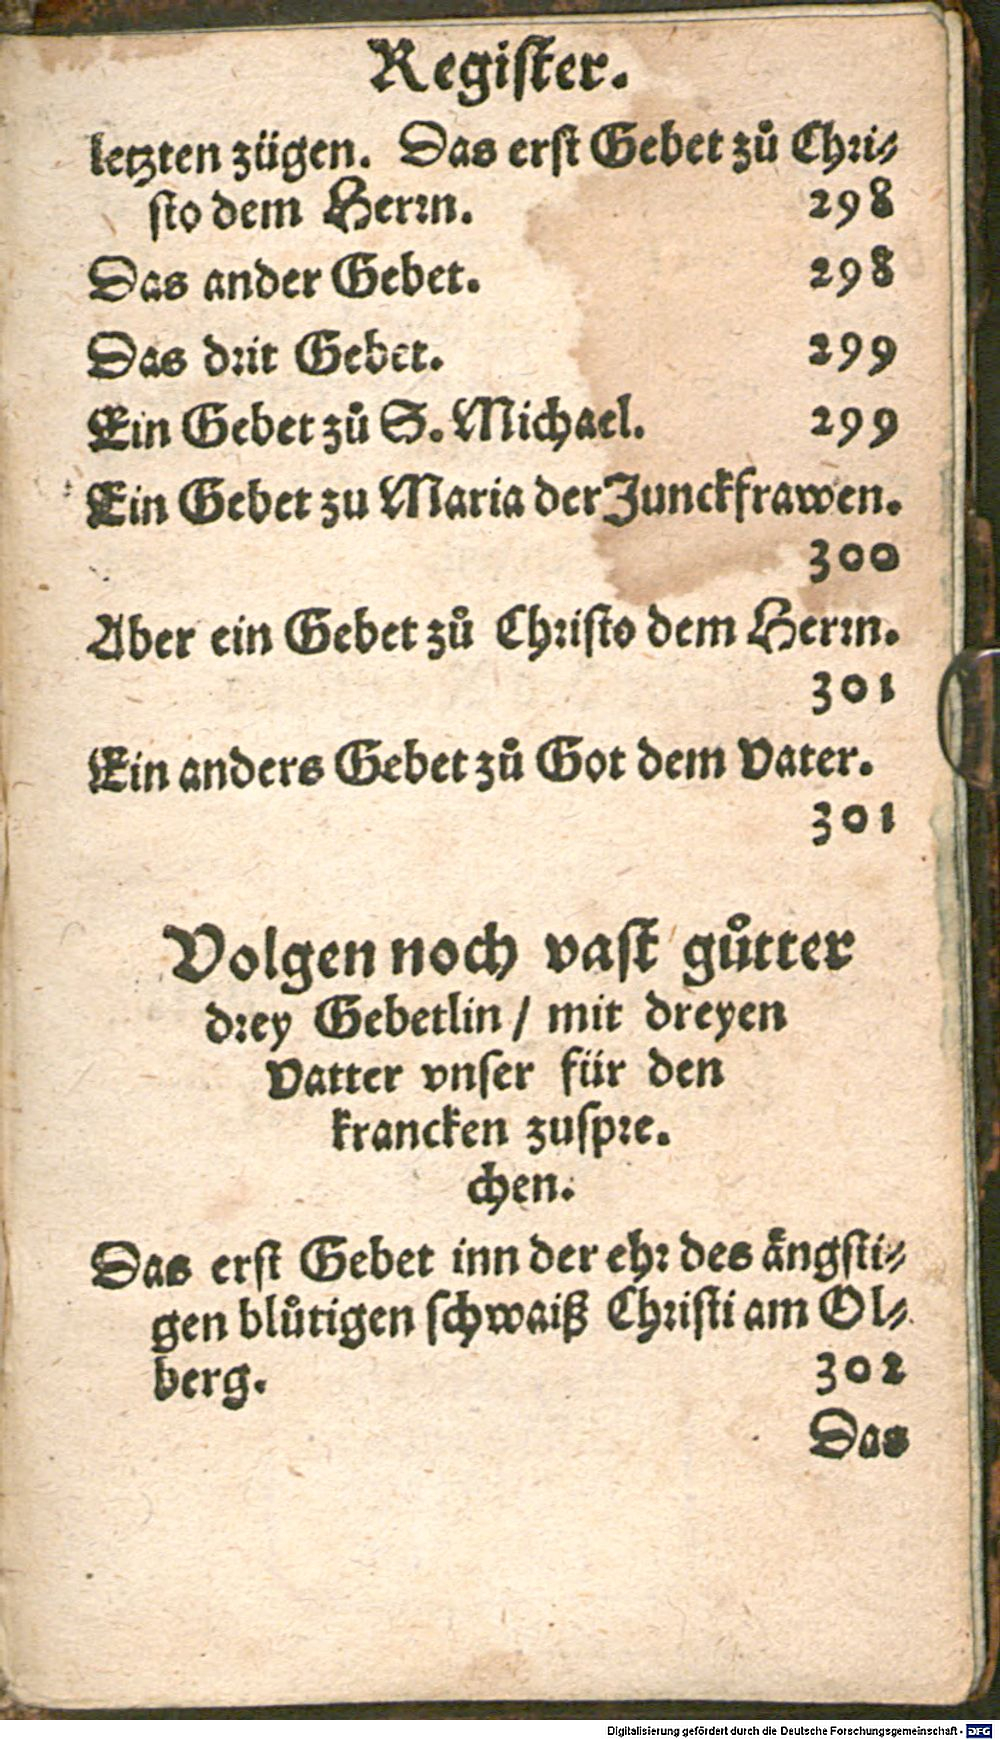 Register.
letzten zügen. Das erst Gebet zů Chri⸗
sto dem Herrn. 298
Das ander Gebet. 298
Das drit Gebet. 299
Ein Gebet zů S. Michael. 299
Ein Gebet zu Maria der Junckfrawen.
300
Aber ein Gebet zů Christo dem Herrn.
301
Ein anders Gebet zů Got dem Vater.
301
Volgen noch vast gůtter
drey Gebetlin / mit dreyen
Vatter vnser für den
krancken zuspre.
chen.
Das erst Gebet inn der ehr des ängsti⸗
gen blůtigen schwaiß Christi am Ol⸗
berg. 302
Das
Digitalisierung gefördert durch die Deutsche Forschungsgemeinschaft - DFG